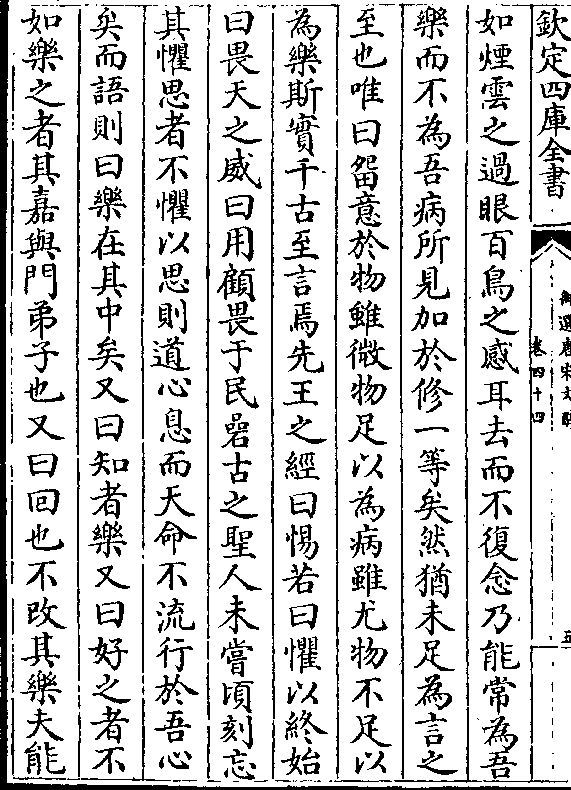 欽定四庫全書
御選唐宋文醇
卷四十四
五
如煙雲之過眼百鳥之感耳去而不復念乃能常為吾
樂而不為吾病所見加於修一等矣然猶未足為言之
至也唯曰留意於物雖微物足以為病雖尤物不足以
為樂斯實千古至言焉先王之經曰惕若曰懼以終始
曰畏天之威曰用顧畏于民碞古之聖人未嘗頃刻忘
其懼思者不懼以思則道心息而天命不流行於吾心
矣而語則曰樂在其中矣又曰知者樂又曰好之者不
如樂之者其嘉與門弟子也又曰回也不改其樂夫能